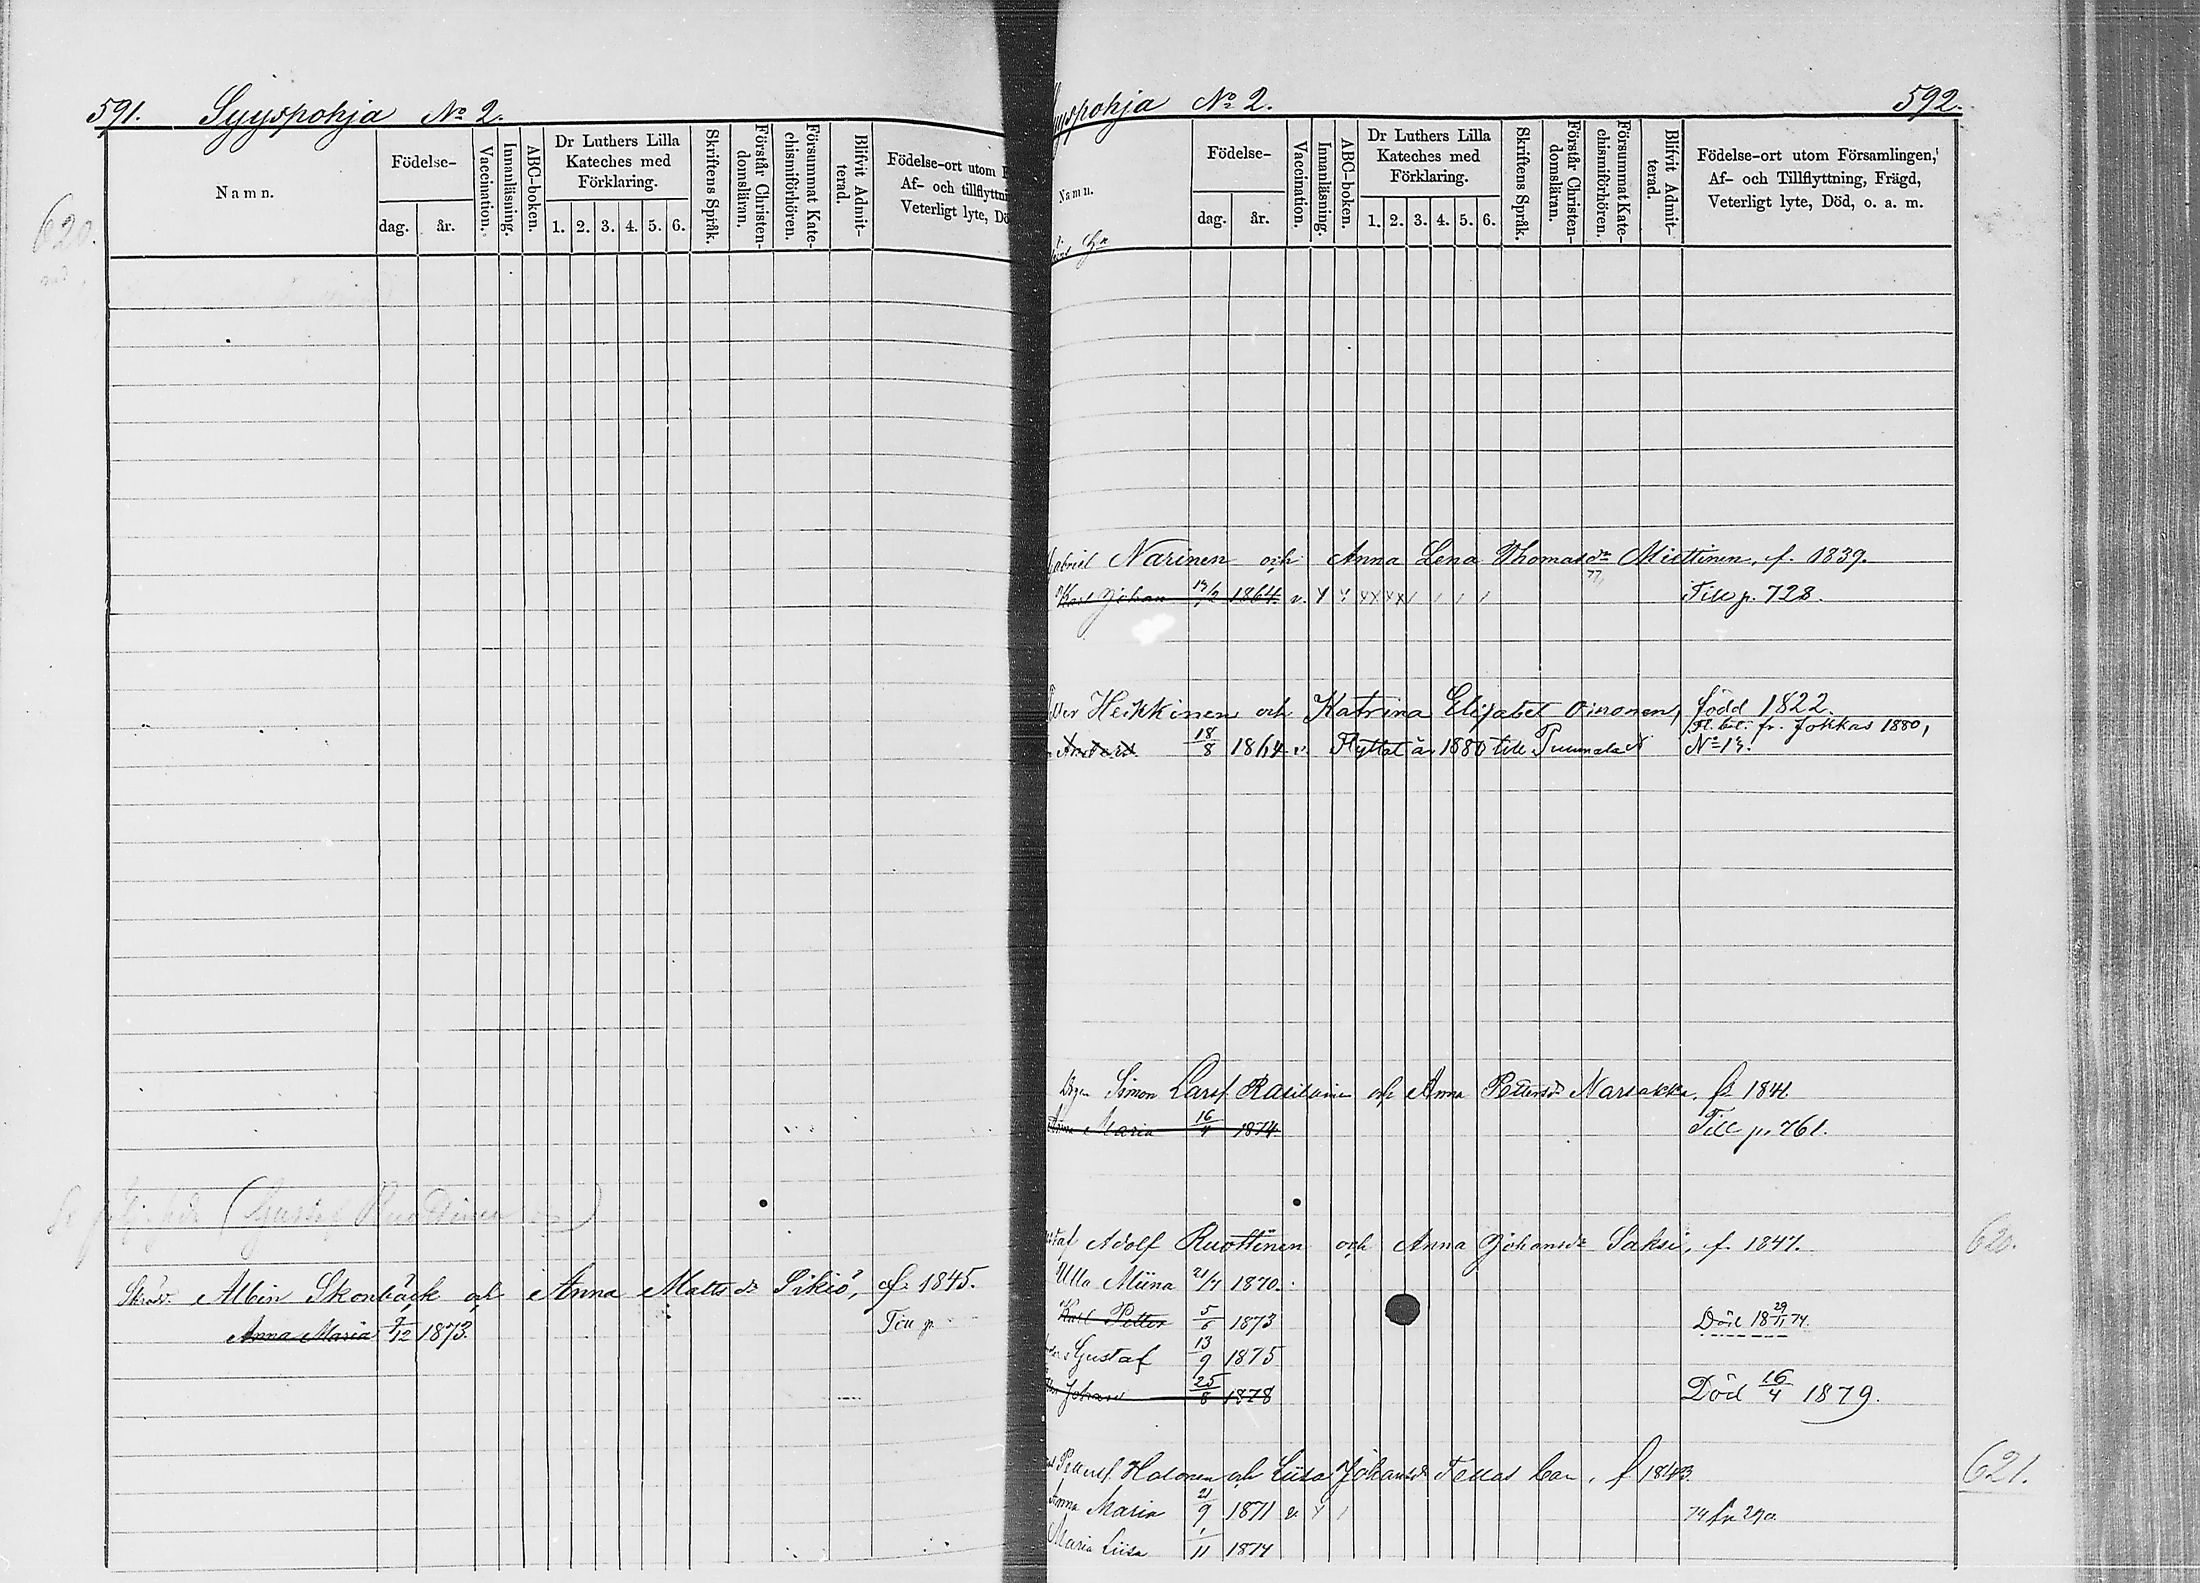 591. Syyspohja No 2.
620.
Namn.
Födelse-
dag.
år.
Vaccination.
Innanläsning.
ABC-boken.
Dr Luthers Lilla
Kateches med
Förklaring.
1. 2. 3. 4. 5. 6.
Skriftens Språk.
Förstår Christen-
domsläran.
Försummat Kate-
chismiförhören.
Blifvit Admit-
terad.
Födelse-ort utom
Af- och tillflyttni
Veterligt lyte, Dö
(Gustaf Ruottinen
Albin Skonbäck och Anna Matts dr Sikiö, f. 1845.
Anna Maria 7/12 1873. Till p.
yspohja No 2. 592.
Namn.
Födelse-
dag.
år.
Vaccination.
Innanläsning.
ABC-boken.
Dr Luthers Lilla
Kateches med
Förklaring.
1. 2. 3. 4. 5. 6.
Skriftens Språk.
Förstår Christen-
domsläran.
Försummat Kate-
chismiförhören.
Blifvit Admit-
terad.
Födelse-ort utom Församlingen,
Af- och Tillflyttning, Frägd,
Veterligt lyte, Död, o. a. m.
abriel Narinen och Anna Lena Thomasdr Miettinen, f. 1839.
Karl Johan 19/2 1864. v. Till p. 728.
tter Heikkinen och Katrina Elisabet Oinonen, född 1822.
18/8 1864 v. Flyttat år 1880 till Pumala Fl. bet. fr. Jokkas 1880,
No 13.
Simon Larsf. Rasilainen och Anna Pettersdr Narsakka, f. 1841
Anna Maria 16/4 1874. Till p. 761.
staf Adolf Ruottinen och Anna Johansdr Saksi, f. 1847. 620.
Ulla Miina 21/4 1870.
Karl Petter 5/6 1873 Död 18 29/11 74.
Gustaf 13/9 1875
Johan 25/8 1878 Död 16/4 1879.
Pettersf. Halonen och Liisa Johansdr Tella f 1843 621.
Anna Maria 21/9 1871 v. 74 fr. 290.
Maria Liisa 1/11 1874